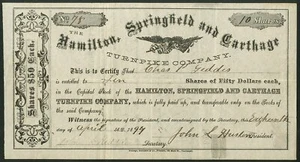 No. 78
10 Shares
THE
Hamilton, Springfield and Carthage
TURNPIKE COMPANY.
This is to Certify That Chas P Geddis
is entitled to Ten Shares of Fifty Dollars each,
in the Capital Stock of the HAMILTON, SPRINGFIELD AND CARTHAGE
TURNPIKE COMPANY, which is fully paid up, and transferable only on the Books of
the said Company.
Witness the signature of the President, and countersigned by the Secretary, this
day of April 1897
John L. President
Secretary.
Shares $50 Each.